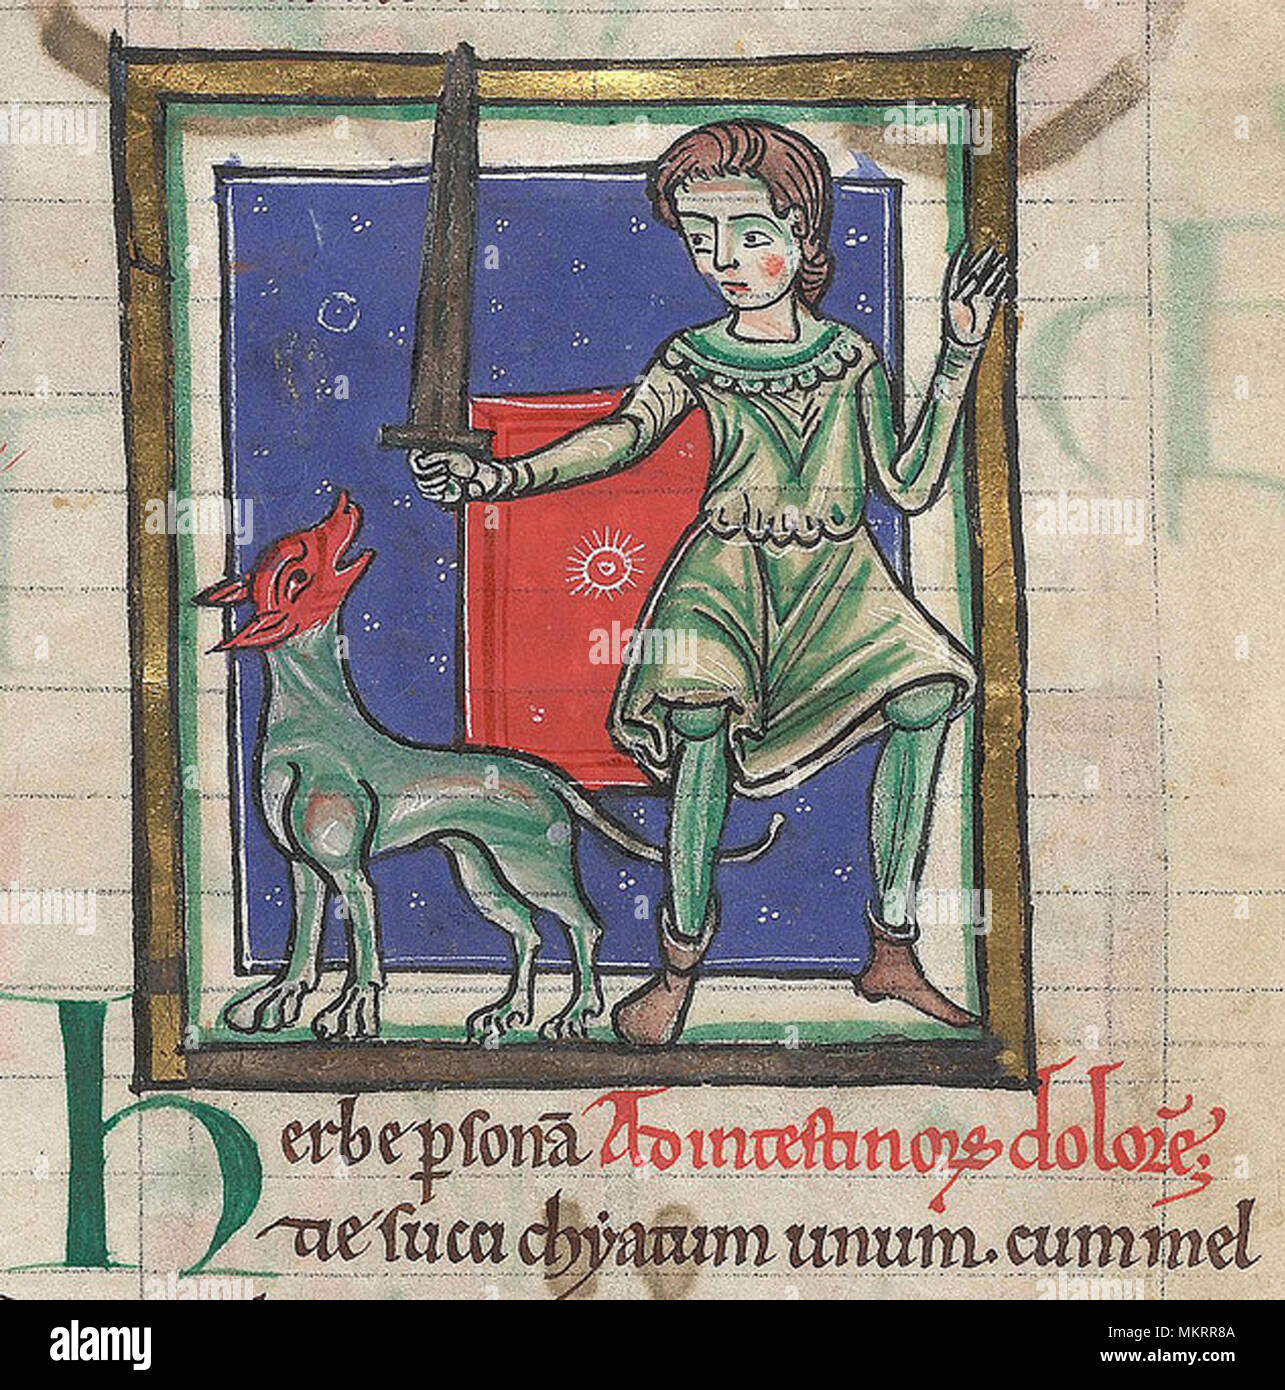 herbe psonā Ad intestinorꝝ dolorē;
tie succi chyatum unum. cum mel
alamy
Image ID: MKRR8A
www.alamy.com